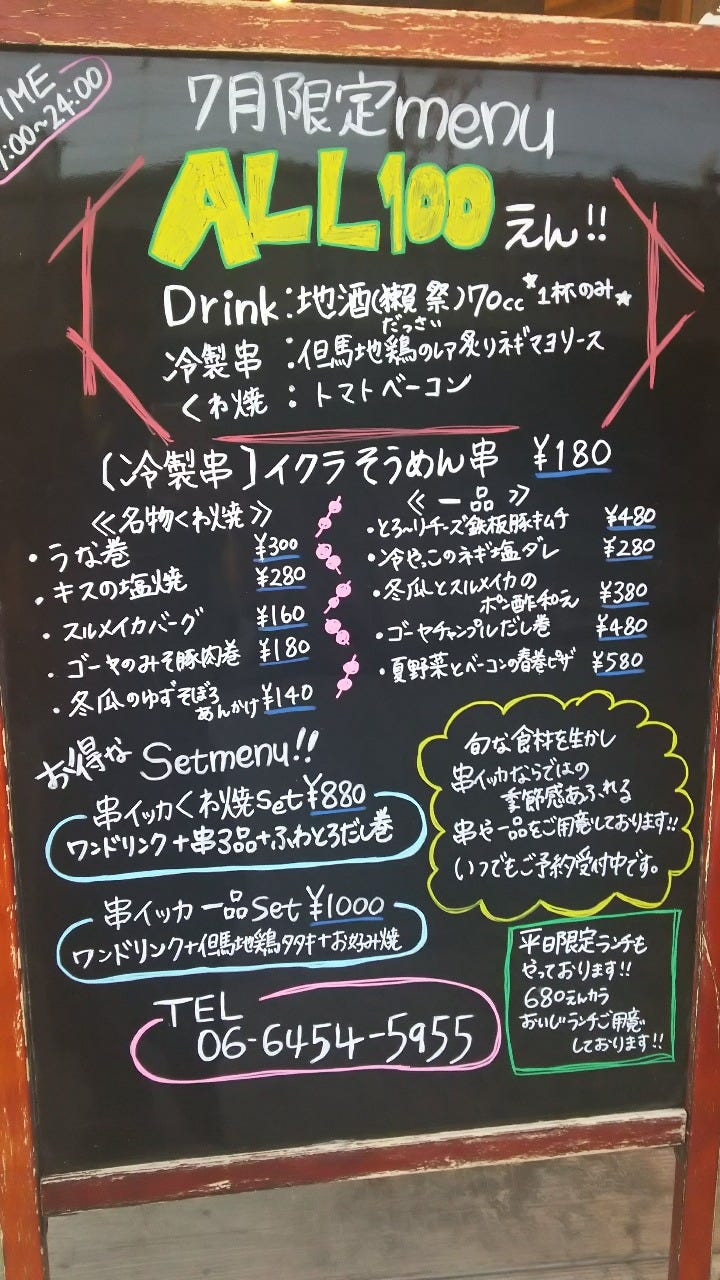 IME
:00~24:00
7月限定menu
ALL100えん!!
Drink:地酒(獺祭)70cc ★1杯のみ★
だっさい
冷製串:但馬地鶏のレア炙りネギマヨソース
くわ焼:トマトベーコン
〔冷製串〕イクラそうめん串 ¥180
≪名物くわ焼≫
・うな巻 ¥300
・キスの塩焼 ¥280
・スルメイカバーグ ¥160
・ゴーヤのみそ豚肉巻 ¥180
・冬瓜のゆずそぼろ
あんかけ ¥140
≪一品≫
・とろ〜りチーズ鉄板豚キムチ ¥480
・冷やっこのネギ塩ダレ ¥280
・冬瓜とスルメイカの
ポン酢和え ¥380
・ゴーヤチャンプルだし巻 ¥480
・夏野菜とベーコンの春巻ピザ ¥580
お得な Setmenu!!
串イッカくわ焼Set ¥880
ワンドリンク+串3品+ふわとろだし巻
串イッカ一品Set ¥1000
ワンドリンク+但馬地鶏タタキ+お好み焼
旬な食材を生かし
串イッカならではの
季節感あふれる
串や一品をご用意しております!!
いつでもご予約受付中です。
平日限定ランチも
やっております!!
680えんカラ
おいしいランチご用意
しております!!
TEL
06-6454-5955